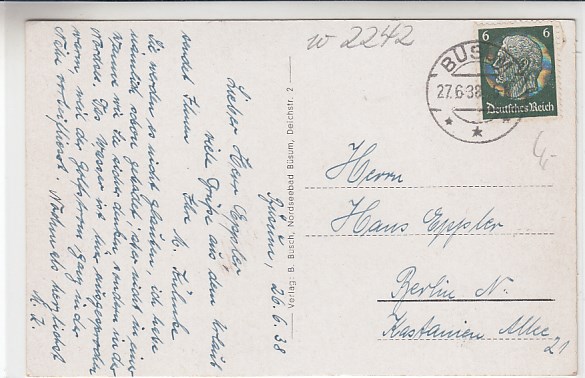 w 2242
6 6
Deutsches Reich
BÜSUM
27.6.38
Büsum, 26.6.38
Lieber Herr Eppler
viele Grüße aus dem Urlaub
sendet Ihnen Ihr
K.
Sie werden es nicht glauben, ich habe
nämlich schon gebadet, aber nicht in einer
Wanne wie Sie sicher denken, sondern in der
Nordsee. Das Wasser ist hier
warm, weil der Golfstrom ganz in der
Nähe vorbeifliesst. Nochmals herzlichst
K. Z.
Verlag: B. Busch, Nordseebad Büsum, Deichstr. 2
Herrn
Hans Eppler
Berlin N.
Kastanien Allee
21